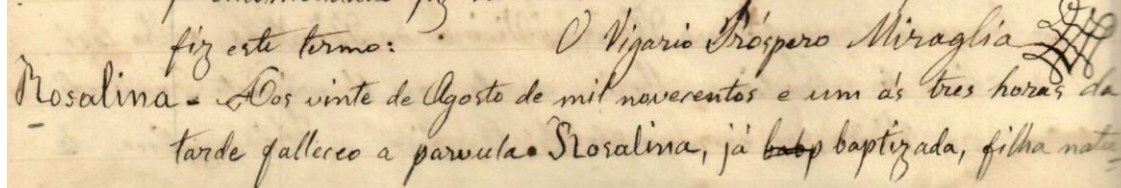 fiz este termo: O Vigario Próspero Miraglia
Rosalina - Aos vinte de Agosto de mil novecentos e um ás tres horas da
tarde falleceo a parvula Rosalina, já babp baptizada, filha natu=